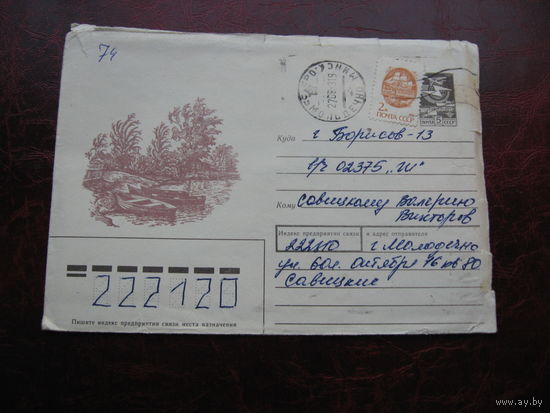 74
МИНСК
27 08
2к
ПОЧТА СССР
ПОЧТА СССР 5к
Куда г Борисов-13
в/ч 02375 „Ш"
Кому Савицкому Валерию
Викторов
Индекс предприятия связи и адрес отправителя
222310 г. Молодечно
ул. 60л. Октября 76 кв 80
Савицкие
222120
Пишите индекс предприятия связи места назначения
www.ay.by